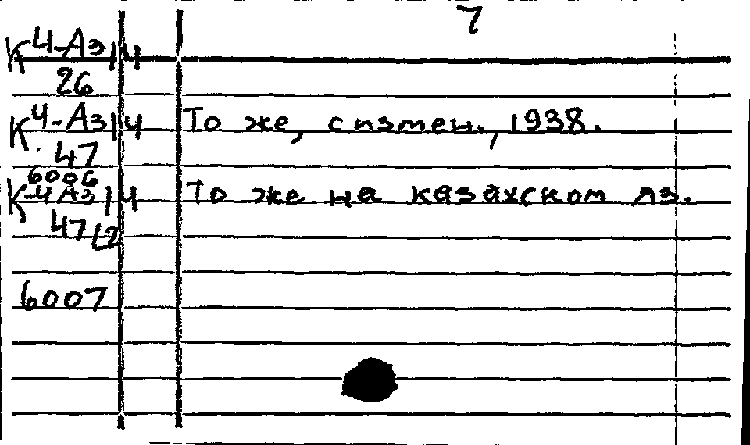 7
К 4-Аз | 4
26
К 4-Аз | 4 То же, с изтен., 1938.
47
6006
К 4 Аз | 4 То же на казахском яз.
47
6007